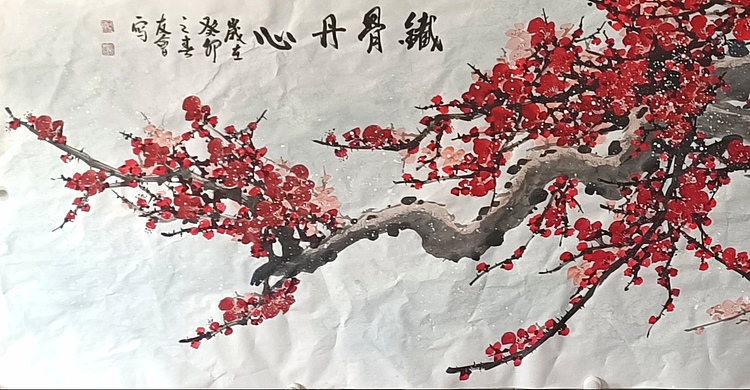 鐵骨丹心
歲在
癸卯
之春
友會
寫